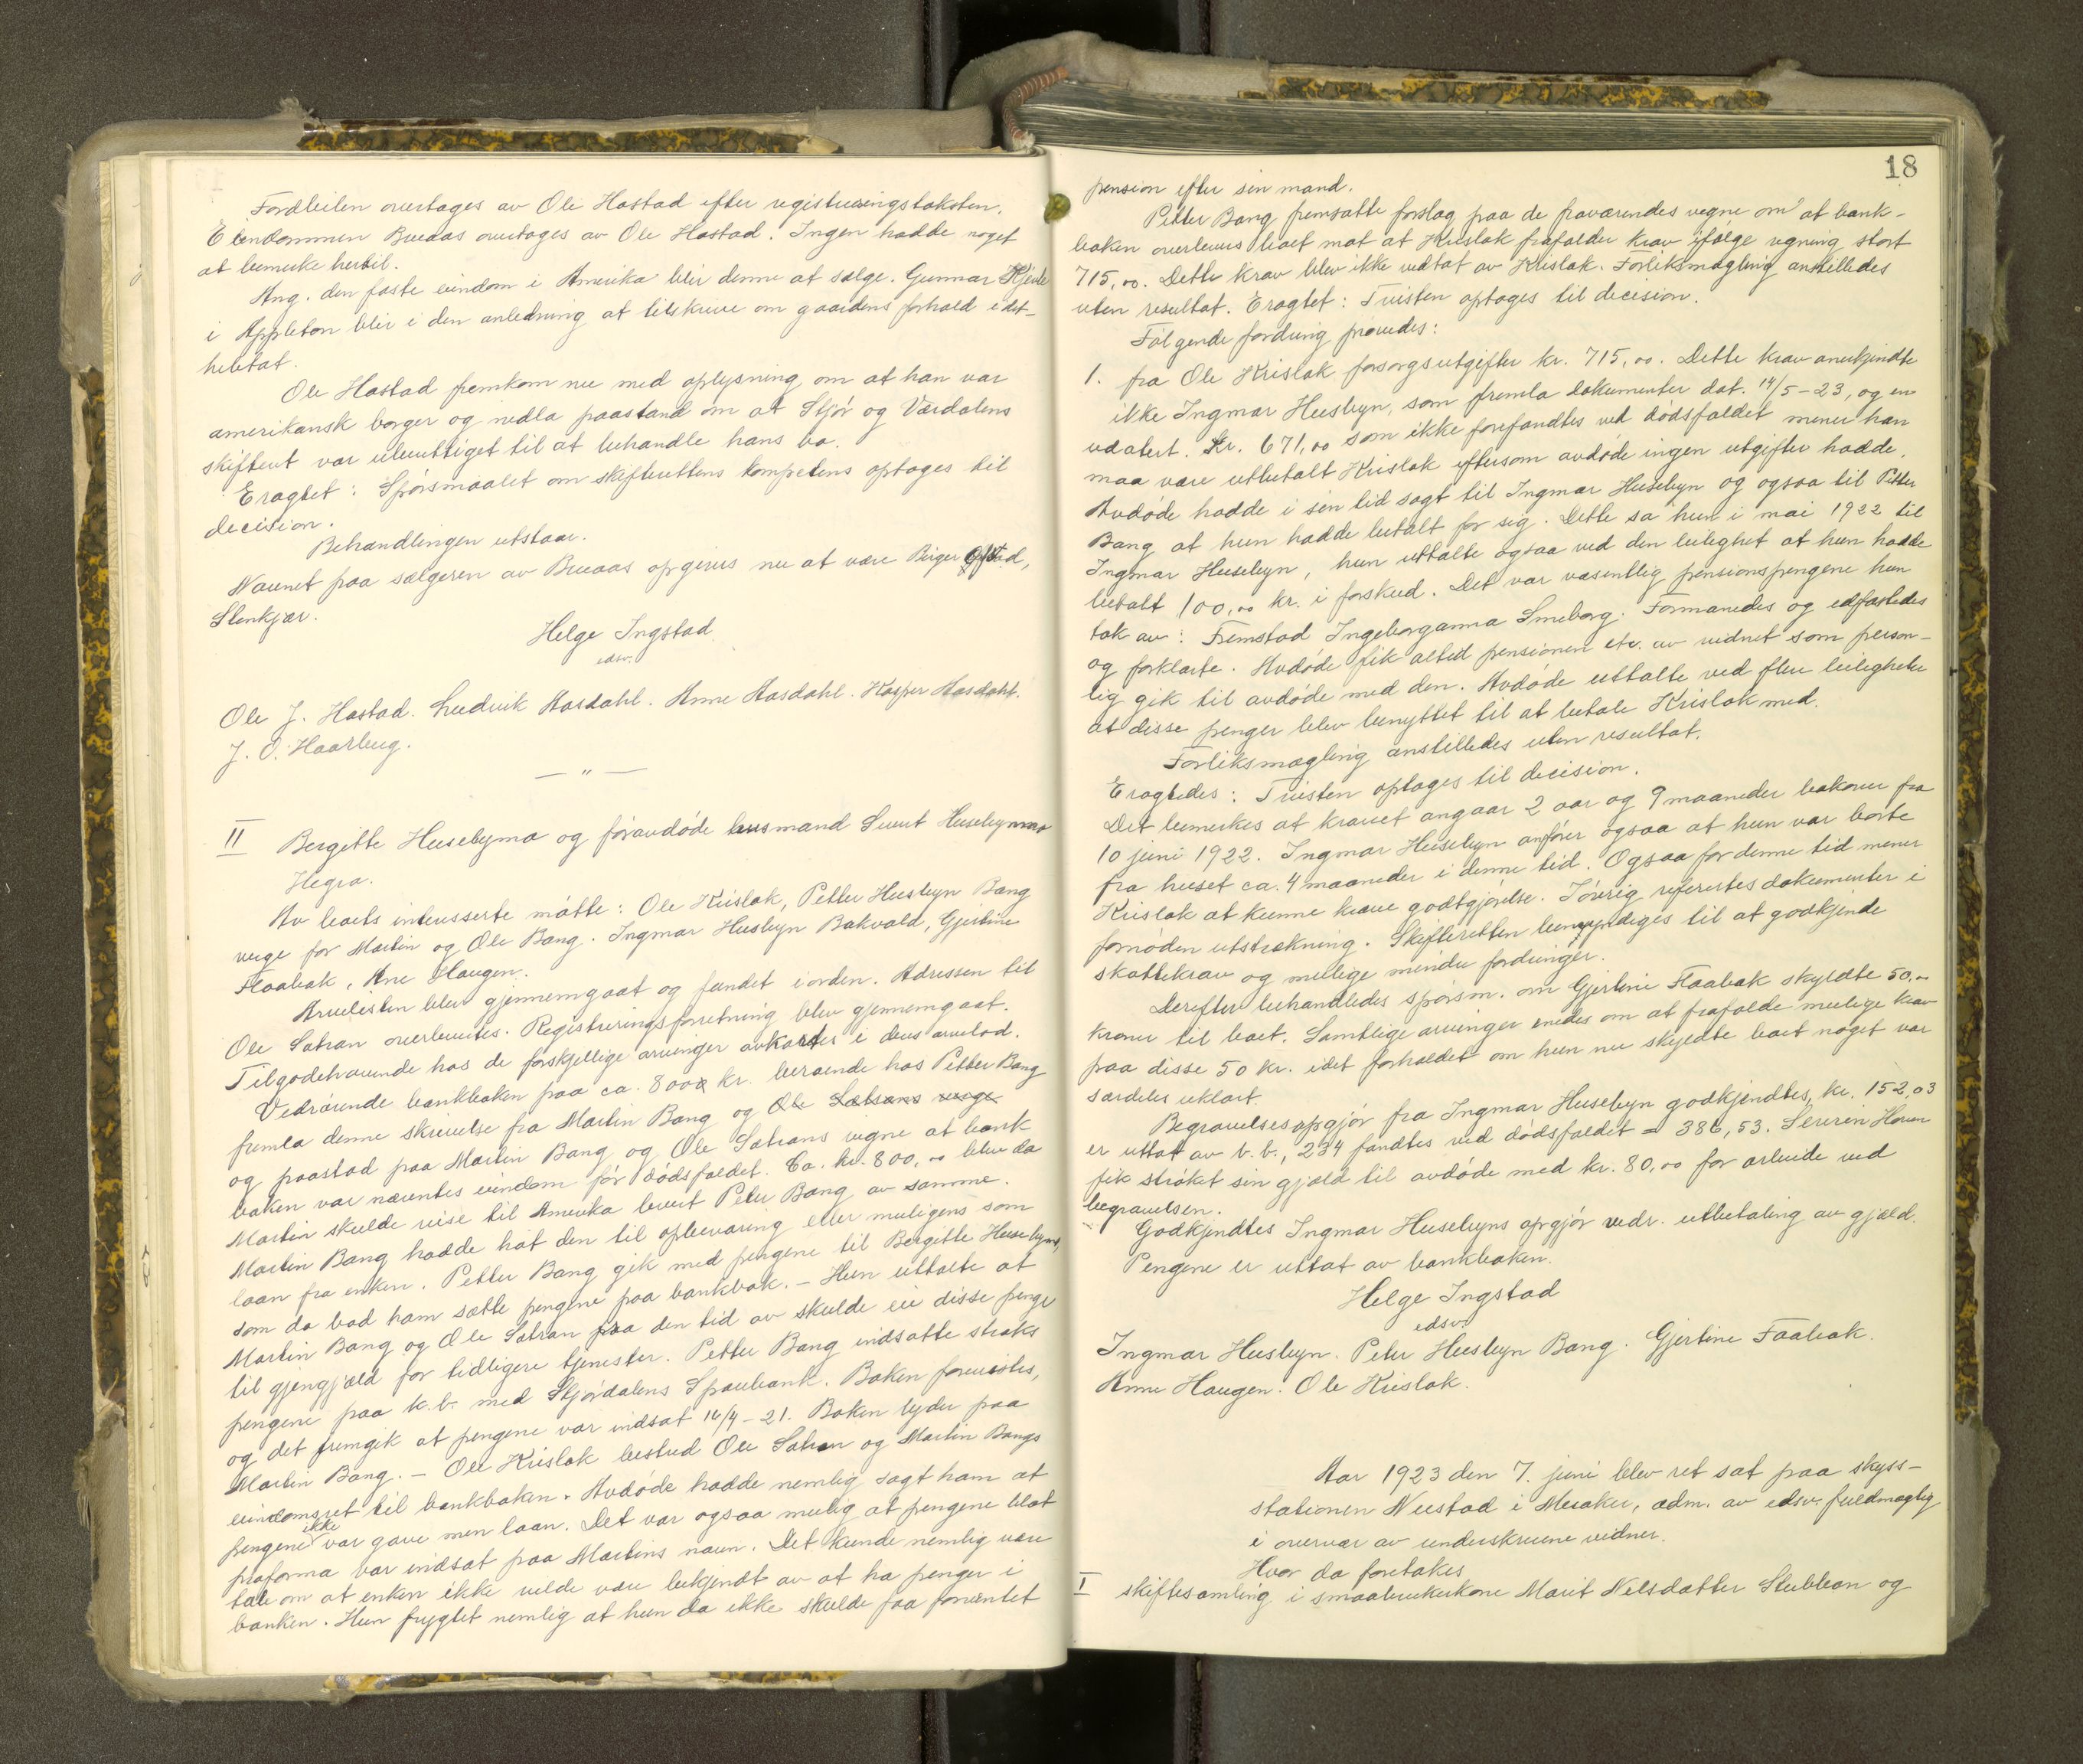 Fordleilen overtages av Ole Hastad efter registreringstaksten.
Eiendommen Brueaas overtages av Ole Hastad. Ingen hadde noget
at bemerke hertil.
Ang. den faste eindom i Amerika blir denne at sælge. Gunnar
i Appleton blir i den anledning at tilskrive om gaardens forhold i det-
heletat.
Ole Hastad fremkom nu med oplysning om at han var
amerikansk borger og nedla paastand om at Stjør og Værdalens
skifteret var uberettiget til at behandle hans bo.
Eragtet: Spørsmaalet om skifterettens kompetens optages til
decision.
Behandlingen utstaar.
Navnet paa sælgeren av Brueaas opgives nu at være Birger
Stenkjær.
Helge Ingstad
edsv.
Ole J. Hastad. Ludvik Aasdahl. Anne Aasdahl. Kasper Aasdahl.
J. O. Haarberg.
— " —
II Bergitte Husebymo og føravdøde husmand Sivert Husebymo
Hegra.
Av boets interesserte møtte: Ole Krislok, Petter Husbyn Bang
verge for Martin og Ole Bang. Ingmar Husbyn Bakvald, Gjertine
Flaabak, Ane Haugen.
Arvelisten blev gjennemgaat og fundet i orden. Adressen til
Ole Sætran overleveres. Registreringsforretning blev gjennemgaat.
Tilgodehavende hos de forskjellige arvinger avkortes i deres arvelod.
Vedrørende bankboken paa ca. 800 kr. beroende hos Petter Bang
fremla denne skrivelse fra Martin Bang og Ole Sætrans verge
og paastod paa Martin Bang og Ole Sætrans vegne at bank
boken var nævntes eiendom før dødsfaldet. Ca. kr. 800,00 blev da
Martin skulde reise til Amerika levert Peter Bang av samme.
Martin Bang hadde hat den til opbevaring eller muligens som
laan fra enken. Petter Bang gik med pengene til Bergitte Husebymo,
som da bad ham sætte pengene paa bankbok. – Hun uttalte at
Martin Bang og Ole Sætran fra den tid av skulde eie disse penge
til gjengjæld for tidligere tjenester. Petter Bang indsatte straks
pengene paa k.b. med Stjørdalens Sparebank. Boken forevistes,
og det fremgik at pengene var indsat 16/4-21. Boken lyder paa
Martin Bang. – Ole Krislok bestred Ole Sætran og Martin Bangs
eiendomsret til bankboken. Avdøde hadde nemlig sagt ham at
pengene ikke var gave men laan. Det var ogsaa mulig at pengene blot
proforma var indsat paa Martins navn. Det kunde nemlig være
tale om at enken ikke vilde være bekjendt av at ha penger i
banken. Hun frygtet nemlig at hun da ikke skulde faa forventet
18
pension efter sin mand.
Petter Bang fremsatte forslag paa de fraværendes vegne om at bank-
boken overleveres boet mot at Krislok frafalder krav ifølge regning stort
715,00. Dette krav blev ikke vedtat av Krislok. Forliksmægling anstilledes
uten resultat. Eragtet: Tvisten optages til decision.
Følgende fordring prøvedes:
1. fra Ole Krislok forsorgsutgifter kr. 715,00. Dette krav anerkjendte
ikke Ingmar Husbyn, som fremla dokumenter dat. 14/5-23, og en
udatert. Kr. 671,00 som ikke forefandtes ved dødsfaldet mener han
maa være utbetalt Krislok eftersom avdøde ingen utgifter hadde.
Avdøde hadde i sin tid sagt til Ingmar Husebyn og ogsaa til Petter
Bang at hun hadde betalt for sig. Dette sa hun i mai 1922 til
Ingmar Husebyn, hun uttalte ogsaa ved den leilighet at hun hadde
betalt 100,00 kr. i forskud. Det var væsentlig pensionspengene hun
tok av: Fremstod Ingeborganna Smeborg. Formanedes og edfæstedes
og forklarte. Avdøde fik altid pensionen etc. av vidnet som person-
lig gik til avdøde med den. Avdøde uttalte ved flere leiligheter
at disse penger blev benyttet til at betale Krislok med.
Forliksmægling anstilledes uten resultat.
Eragtedes: Tvisten optages til decision.
Det bemerkes at kravet angaar 2 aar og 9 maaneder bakover fra
10 juni 1922. Ingmar Husebyn anfører ogsaa at hun var borte
fra huset ca. 4 maaneder i denne tid. Ogsaa for denne tid mener
Krislok at kunne kræve godtgjørelse. Iøvrig referertes dokumenter i
fornøden utstrækning. Skifteretten bemyndiges til at godkjende
skattekrav og mulige mindre fordringer.
Derefter behandledes spørsm. om Gjertine Flaabak skyldte 50,-
kroner til boet. Samtlige arvinger enedes om at frafalde mulige krav
paa disse 50 kr. idet forholdet om hun nu skyldte boet noget var
særdeles uklart.
Begravelsesopgjør fra Ingmar Husebyn godkjendtes, kr. 152,03
er uttat av b.b., 234 fandtes ved dødsfaldet = 386,53. Severin Haven
fik strøket sin gjæld til avdøde med kr. 80,00 for arbeide ved
begravelsen.
Godkjendtes Ingmar Husebyns opgjør vedr. utbetaling av gjæld.
Pengene er uttat av bankboken.
Helge Ingstad
edsv.
Ingmar Husbyn. Peter Husbyn Bang. Gjertine Faabak.
Anne Haugen. Ole Krislok.
Aar 1923 den 7. juni blev ret sat paa skyss-
stationen Nustad i Meraker, adm. av edsv. fuldmægtig
i overvær av underskrevne vidner.
Hvor da foretokes
I skiftesamling i smaabrukerkone Marit Nilsdatter Stubban og